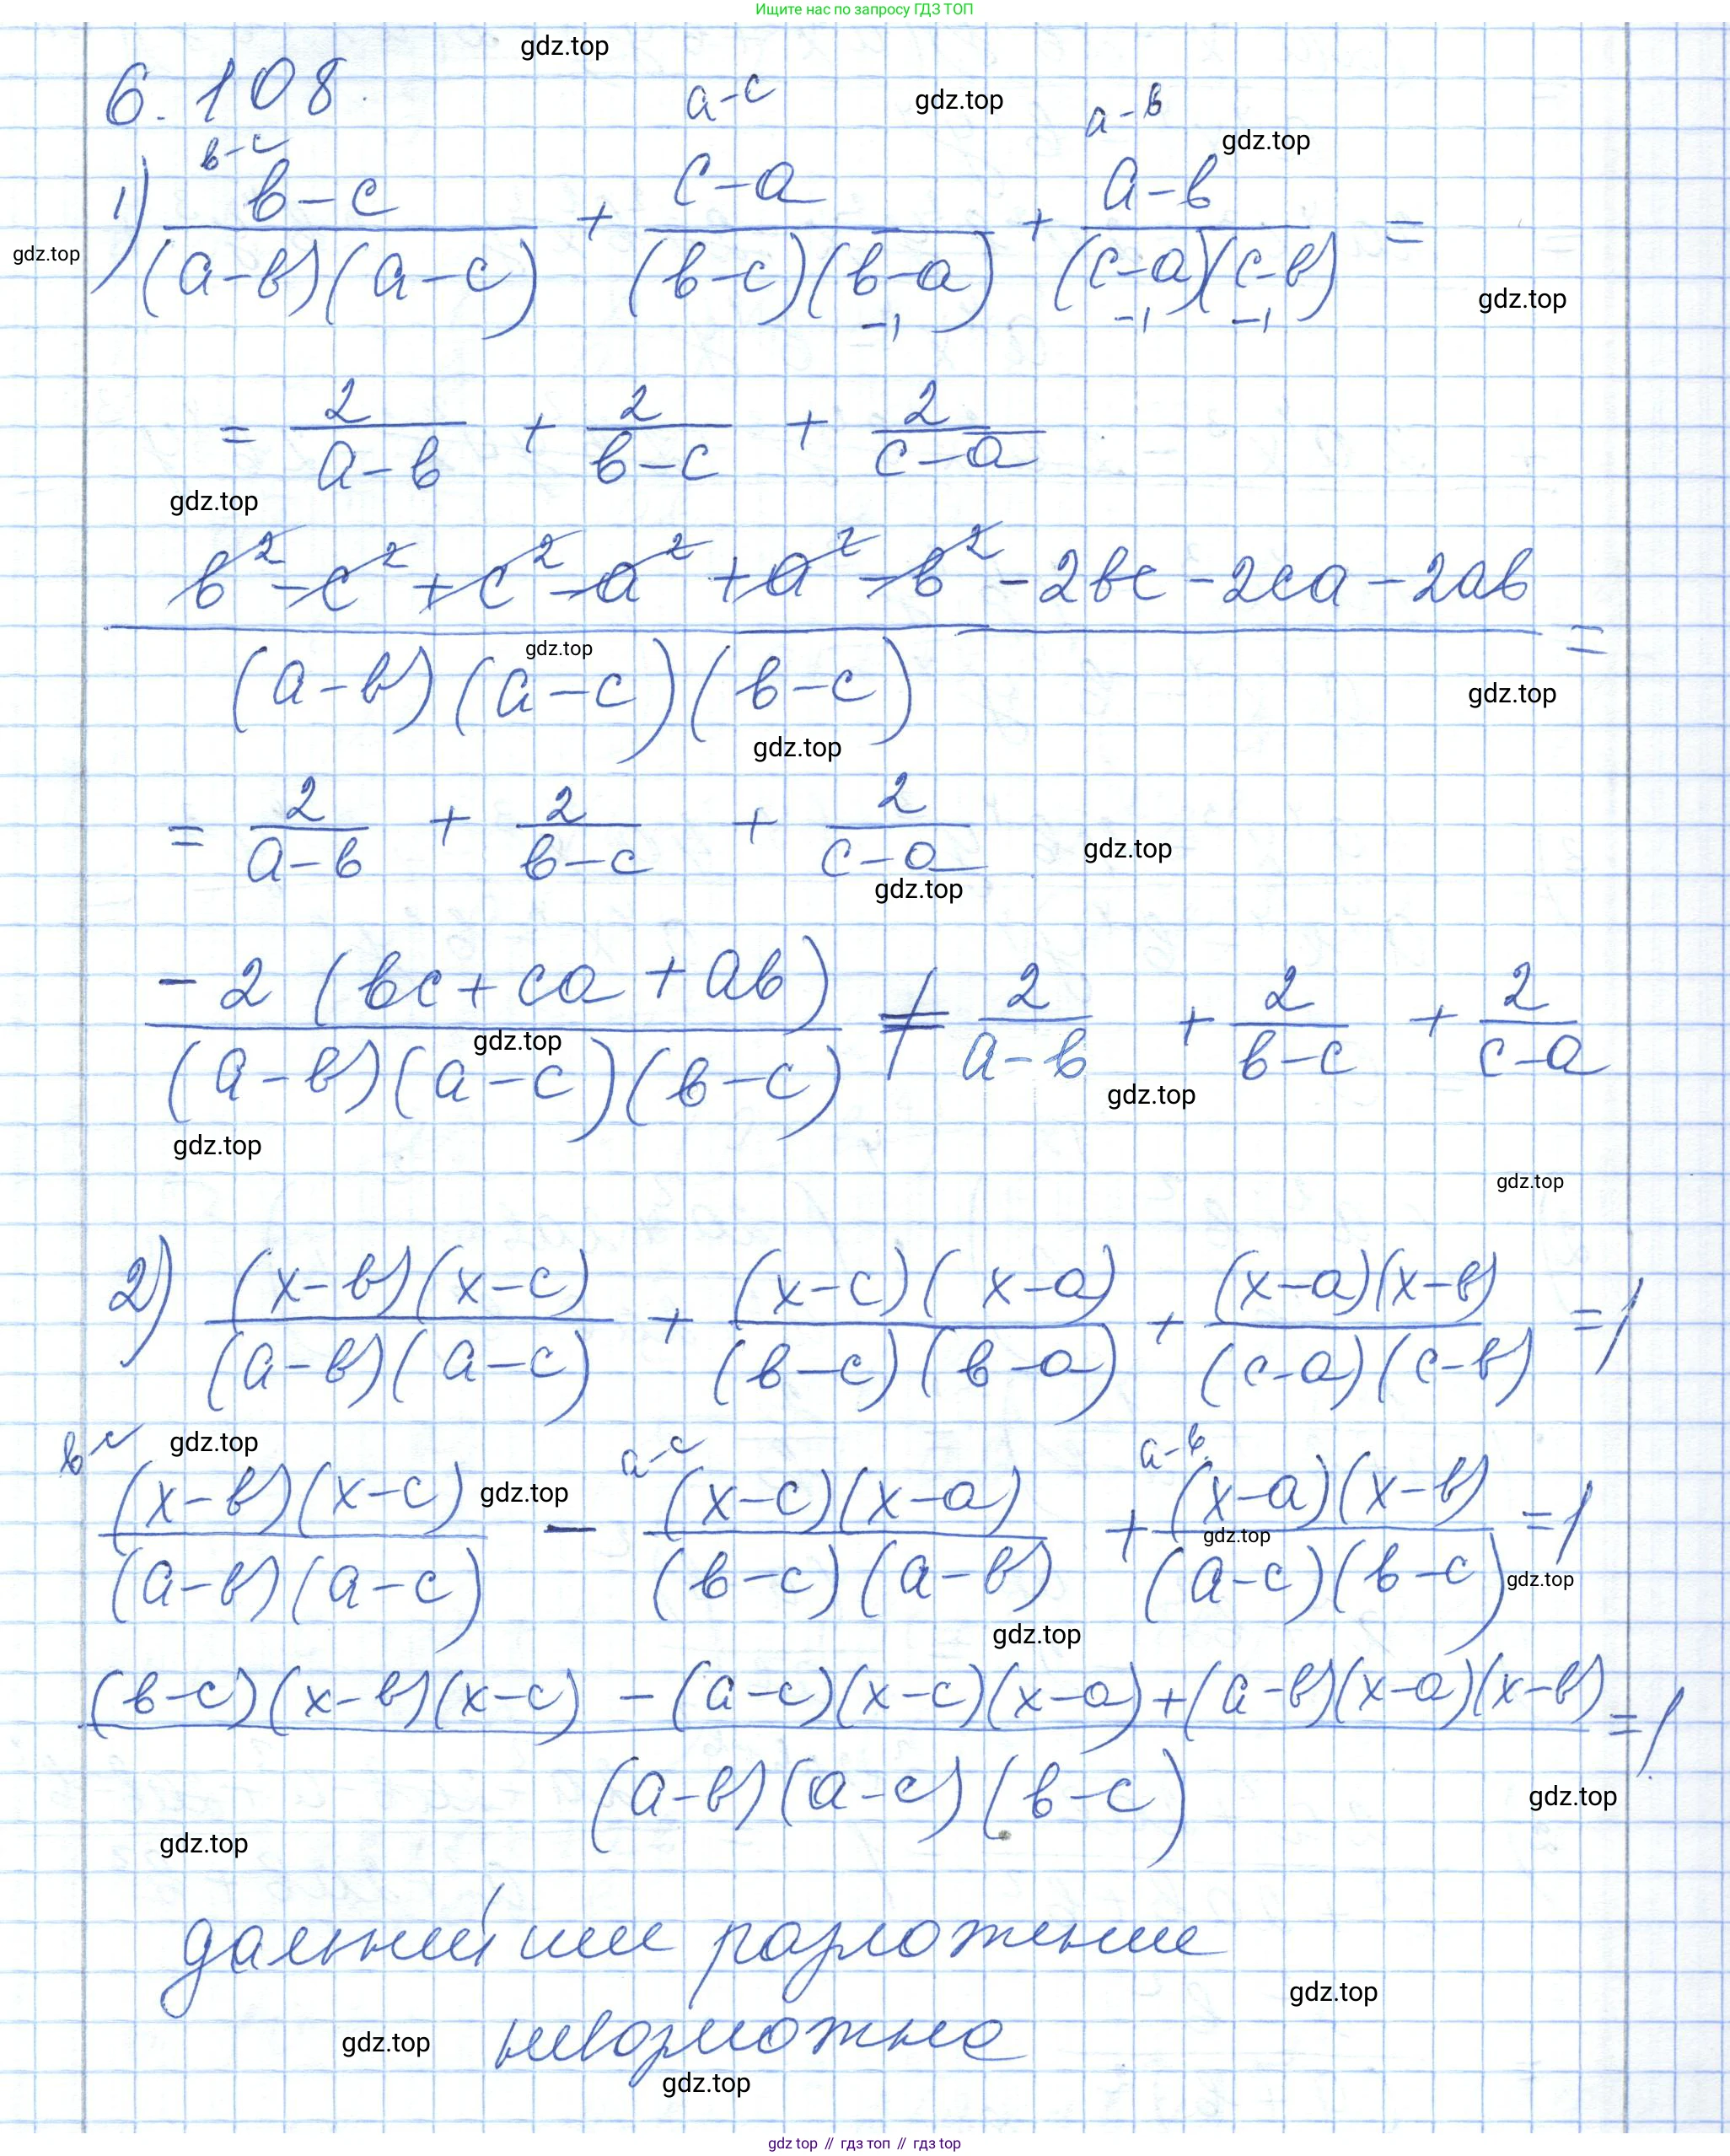 Ищите нас по запросу ГДЗ ТОП
gdz.top
6.108.
a-c
gdz.top
a-в
gdz.top
в-c
1) (в-c)/((a-в)(a-c)) + (c-a)/((в-c)(в-a)) + (a-в)/((c-a)(c-в)) =
-1 -1 -1
gdz.top
gdz.top
= 2/(a-в) + 2/(в-c) + 2/(c-a)
gdz.top
(в²-c²+c²-a²+a²-в²-2вc-2ca-2aв)/((a-в)(a-c)(в-c)) =
gdz.top
gdz.top
gdz.top
= 2/(a-в) + 2/(в-c) + 2/(c-a)
gdz.top
gdz.top
(-2(вc+ca+aв))/((a-в)(a-c)(в-c)) ≠ 2/(a-в) + 2/(в-c) + 2/(c-a)
gdz.top
gdz.top
gdz.top
gdz.top
2) ((x-в)(x-c))/((a-в)(a-c)) + ((x-c)(x-a))/((в-c)(в-a)) + ((x-a)(x-в))/((c-a)(c-в)) =1
в-c gdz.top a-c a-в
((x-в)(x-c))/((a-в)(a-c)) - ((x-c)(x-a))/((в-c)(a-в)) + ((x-a)(x-в))/((a-c)(в-c)) =1
gdz.top
gdz.top
gdz.top
gdz.top
((в-c)(x-в)(x-c) - (a-c)(x-c)(x-a)+(a-в)(x-a)(x-в))/((a-в)(a-c)(в-c)) =1
gdz.top
gdz.top
дальнейшее разложение
gdz.top
невозможно
gdz.top
gdz.top
gdz top // гдз топ // гдз top